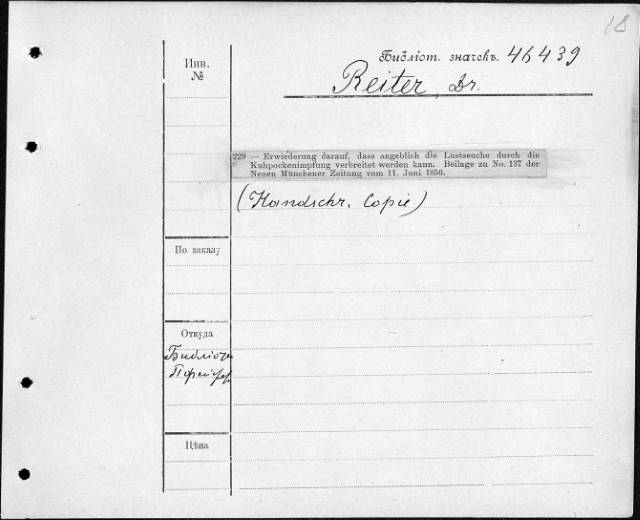 18
Библіот. значекъ. 46439
Инв.
№
Reiter, Dr.
229 — Erwiederung darauf, dass angeblich die Lustseuche durch die
Kuhpockenimpfung verbreitet werden kann. Beilage zu No. 137 der
Neuen Münchener Zeitung vom 11. Juni 1850.
(Handschr. Copie)
По заказу
Откуда
Цѣна